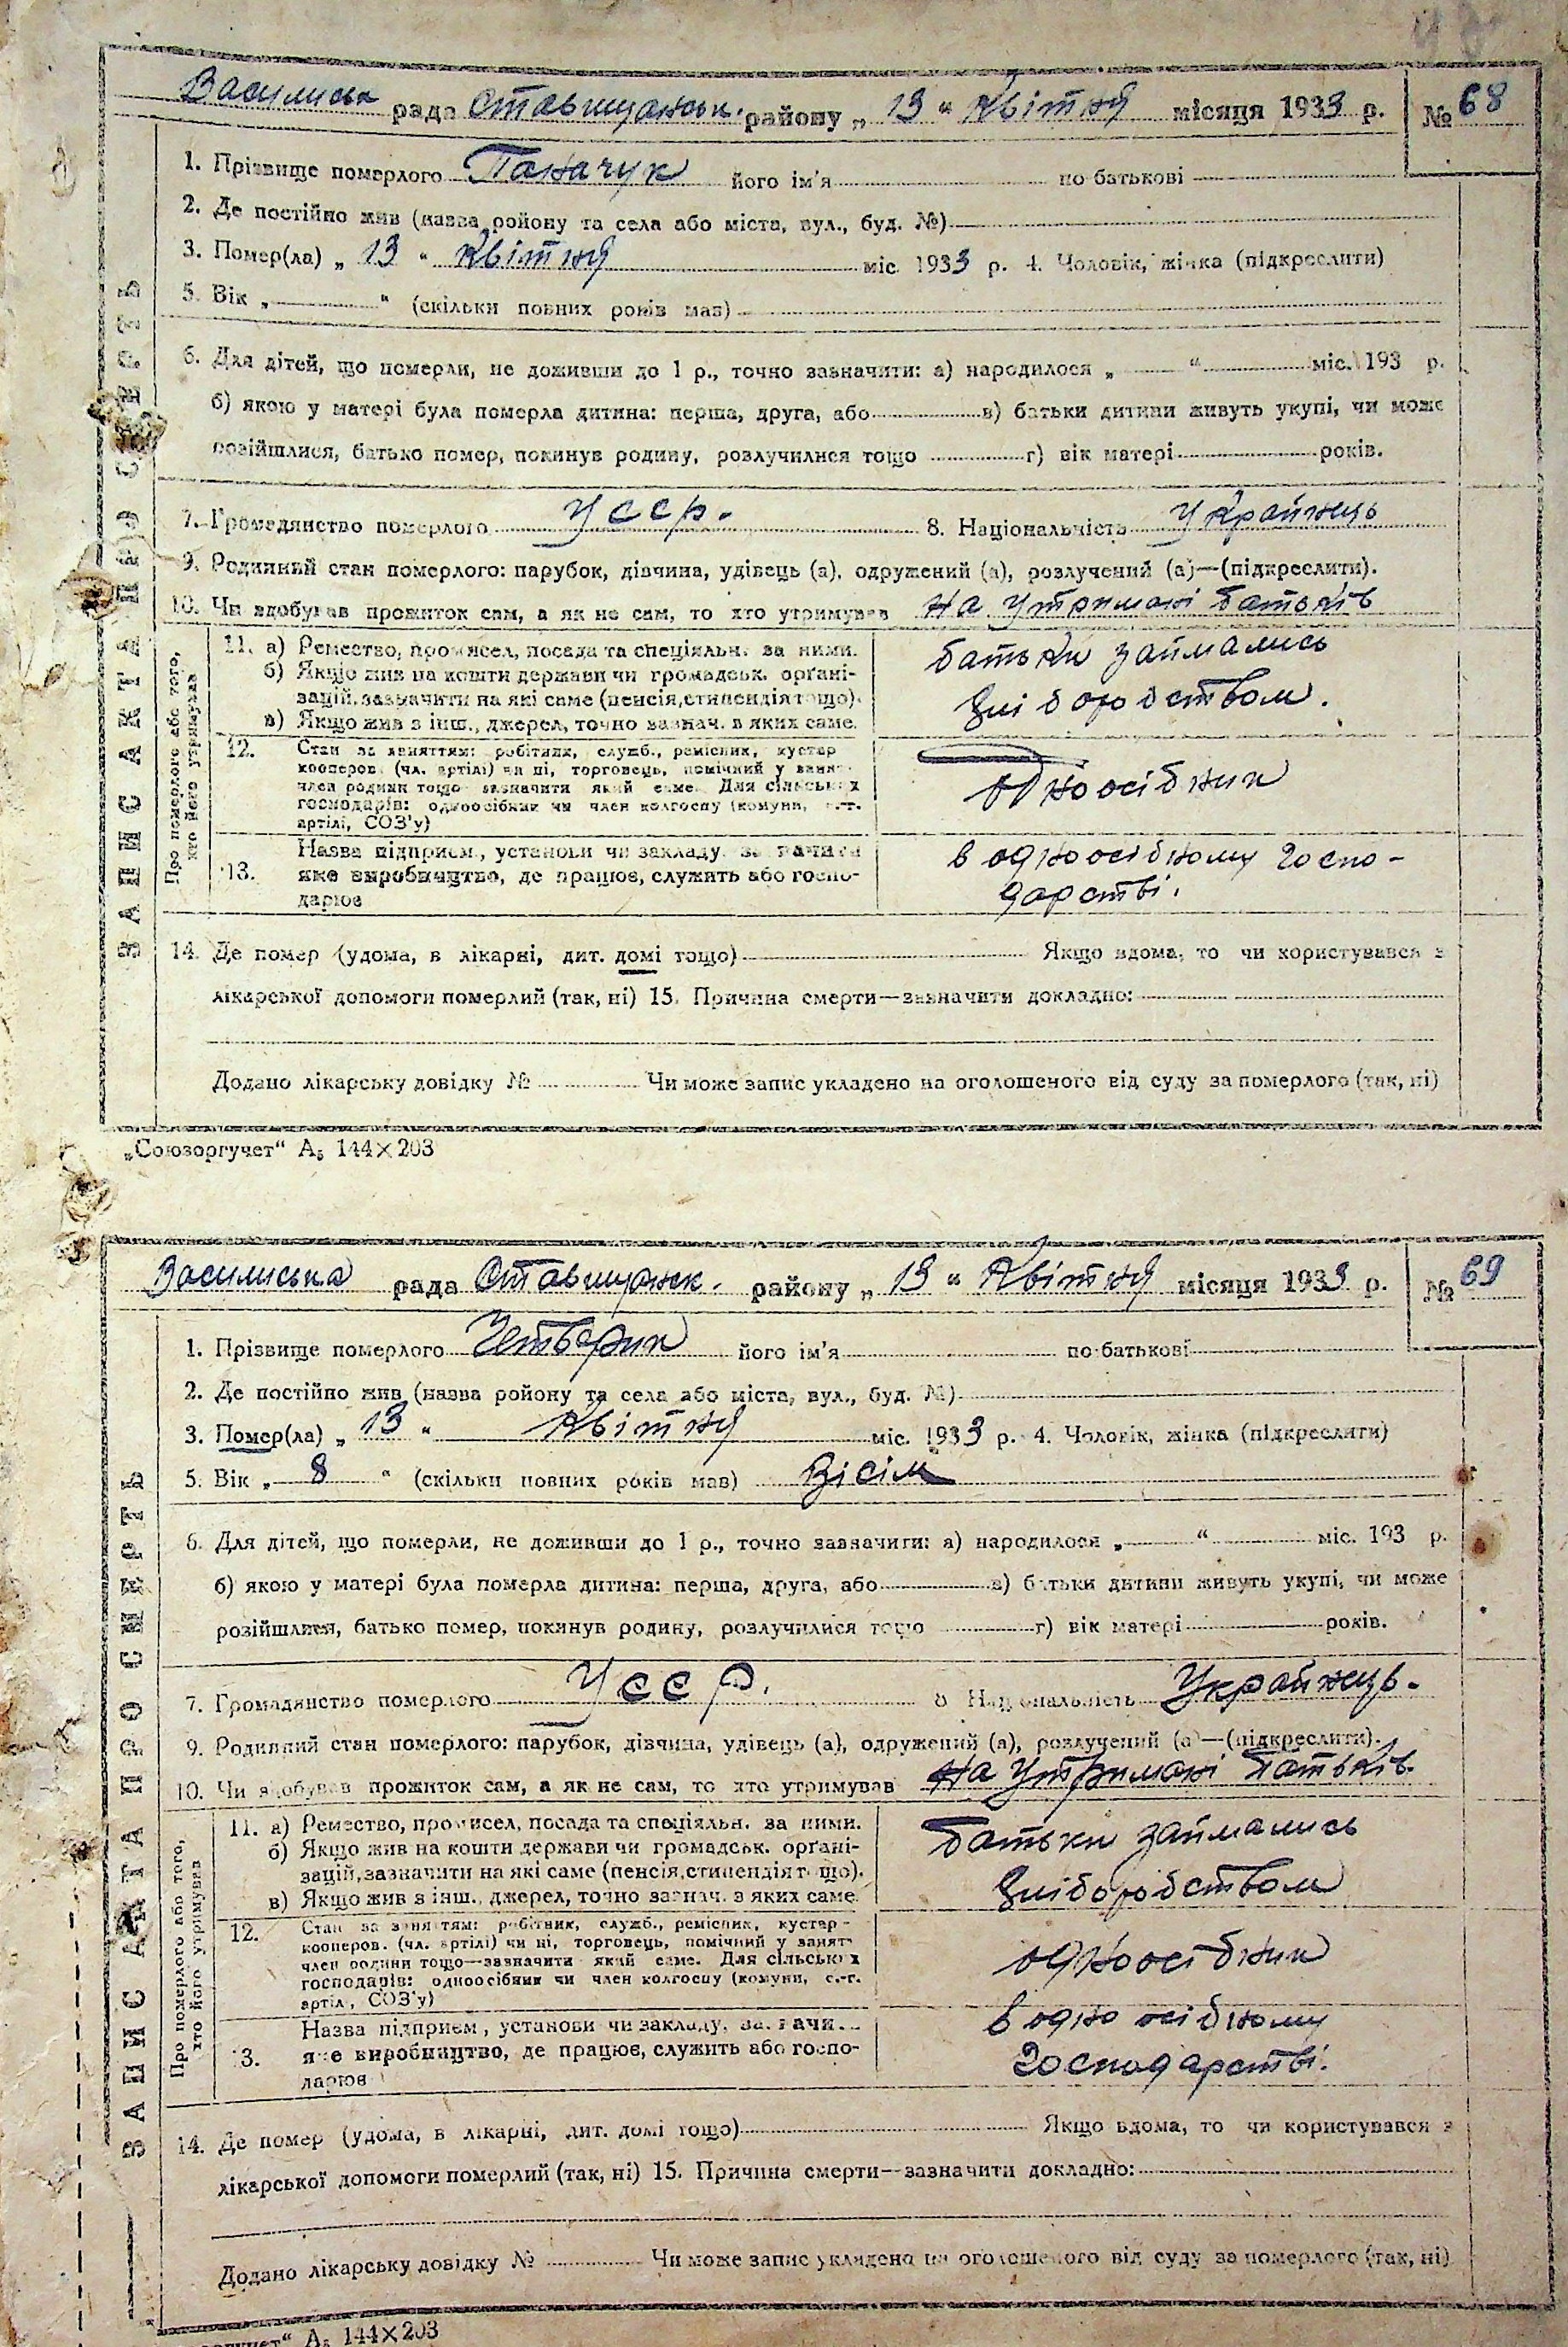 Василиська рада Ставищанськ. району „ 13 “ Квітня місяця 1933 р. № 68
1. Прізвище померлого Паначук його ім'я по батькові
2. Де постійно жив (назва району та села або міста, вул., буд. №)
3. Помер(ла) „ 13 “ Квітня міс. 1933 р. 4. Чоловік, жінка (підкреслити)
5. Вік „ “ (скільки повних років мав)
6. Для дітей, що померли, не доживши до 1 р., точно зазначити: а) народилося „ “ міс. 193 р.
б) якою у матері була померла дитина: перша, друга, або в) батьки дитини живуть укупі, чи може
розійшлися, батько помер, покинув родину, розлучилися тощо г) вік матері років.
7. Громадянство померлого УССР. 8. Національність Українець
9. Родинний стан померлого: парубок, дівчина, удівець (а), одружений (а), розлучений (а)—(підкреслити).
10. Чи здобував прожиток сам, а як не сам, то хто утримував на утримані батьків
ЗАПИС АКТА ПРО СМЕРТЬ
Про померлого або того, хто його утримував
11. а) Ремество, промисел, посада та спеціяльн. за ними. батьки займались
б) Якщо жив на кошти держави чи громадськ. органі-
зацій, зазначити на які саме (пенсія, стипендія тощо). хліборобством.
в) Якщо жив з інш., джерел, точно зазнач. з яких саме.
12. Стан за заняттям: робітник, служб., ремісник, кустар
кооперов. (чл. артілі) чи ні, торговець, помічний у занят.
член родини тощо зазначити який саме. Для сільських одноосібник
господарів: одноосібник чи член колгоспу (комуни, с.-г.
артілі, СОЗ'у)
Назва підприєм., установи чи закладу, зазначити в одноосібному госпо-
13. яке виробництво, де працює, служить або госпо- дарстві.
дарює
14. Де помер (удома, в лікарні, дит. домі тощо) Якщо вдома, то чи користувався з
лікарської допомоги померлий (так, ні) 15. Причина смерти—зазначити докладно:
Додано лікарську довідку № Чи може запис укладено на оголошеного від суду за померлого (так, ні)
„Союзоргучет“ А₅ 144×203
Василиська рада Ставищанск. району „ 13 “ Квітня місяця 1933 р. № 69
1. Прізвище померлого Четверик його ім'я по батькові
2. Де постійно жив (назва району та села або міста, вул., буд. №)
3. Помер(ла) „ 13 “ Квітня міс. 1933 р. 4. Чоловік, жінка (підкреслити)
5. Вік „ 8 “ (скільки повних років мав) Вісім
6. Для дітей, що померли, не доживши до 1 р., точно зазначити: а) народилося „ “ міс. 193 р.
б) якою у матері була померла дитина: перша, друга, або в) батьки дитини живуть укупі, чи може
розійшлися, батько помер, покинув родину, розлучилися тощо г) вік матері років.
7. Громадянство померлого УССР. 8 Національність Українець.
9. Родинний стан померлого: парубок, дівчина, удівець (а), одружений (а), розлучений (а)—(підкреслити).
10. Чи здобував прожиток сам, а як не сам, то хто утримував на утримані батьків.
ЗАПИС АКТА ПРО СМЕРТЬ
Про померлого або того, хто його утримував
11. а) Ремество, промисел, посада та спеціяльн. за ними. батьки займались
б) Якщо жив на кошти держави чи громадськ. органі-
зацій, зазначити на які саме (пенсія, стипендія тощо). хліборобством
в) Якщо жив з інш., джерел, точно зазнач. з яких саме.
12. Стан за заняттям: робітник, служб., ремісник, кустар-
кооперов. (чл. артілі) чи ні, торговець, помічний у занят.
член родини тощо—зазначити який саме. Для сільських одноосібник
господарів: одноосібник чи член колгоспу (комуни, с.-г.
артіл, СОЗ'у)
Назва підприєм., установи чи закладу, зазначити в одноосібному
13. яке виробництво, де працює, служить або госпо- господарстві.
дарює
14. Де помер (удома, в лікарні, дит. домі тощо) Якщо вдома, то чи користувався з
лікарської допомоги померлий (так, ні) 15. Причина смерти—зазначити докладно:
Додано лікарську довідку № Чи може запис укладено на оголошеного від суду за померлого (так, ні)
А₅ 144×203